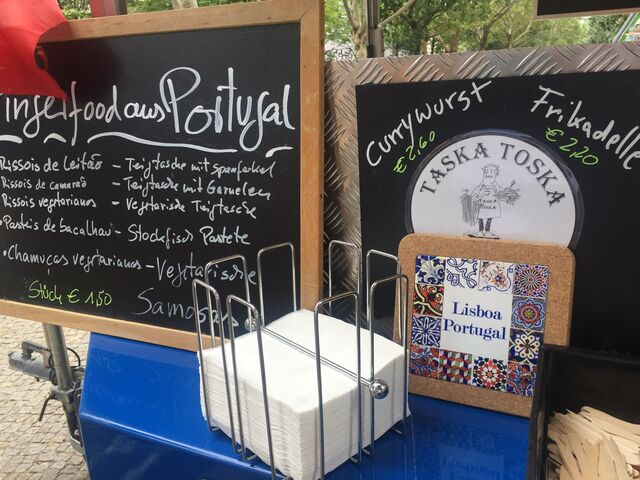 ingerfood aus Portugal
Rissois de Leitão - Teigtasche mit Spanferkel
Rissois de camarão - Teigtasche mit Garnelen
Rissois vegetarianos - Vegetarische Teigtasche
• Pasteis de bacalhau - Stockfisch Pastete
• Chamuças vegetarianos - Vegetarische
Samosas
Stück € 1,50
Currywurst
€ 2,60
Frikadelle
€ 2,20
TASKA TOSKA
TASKA
TOSKA
Lisboa
Portugal